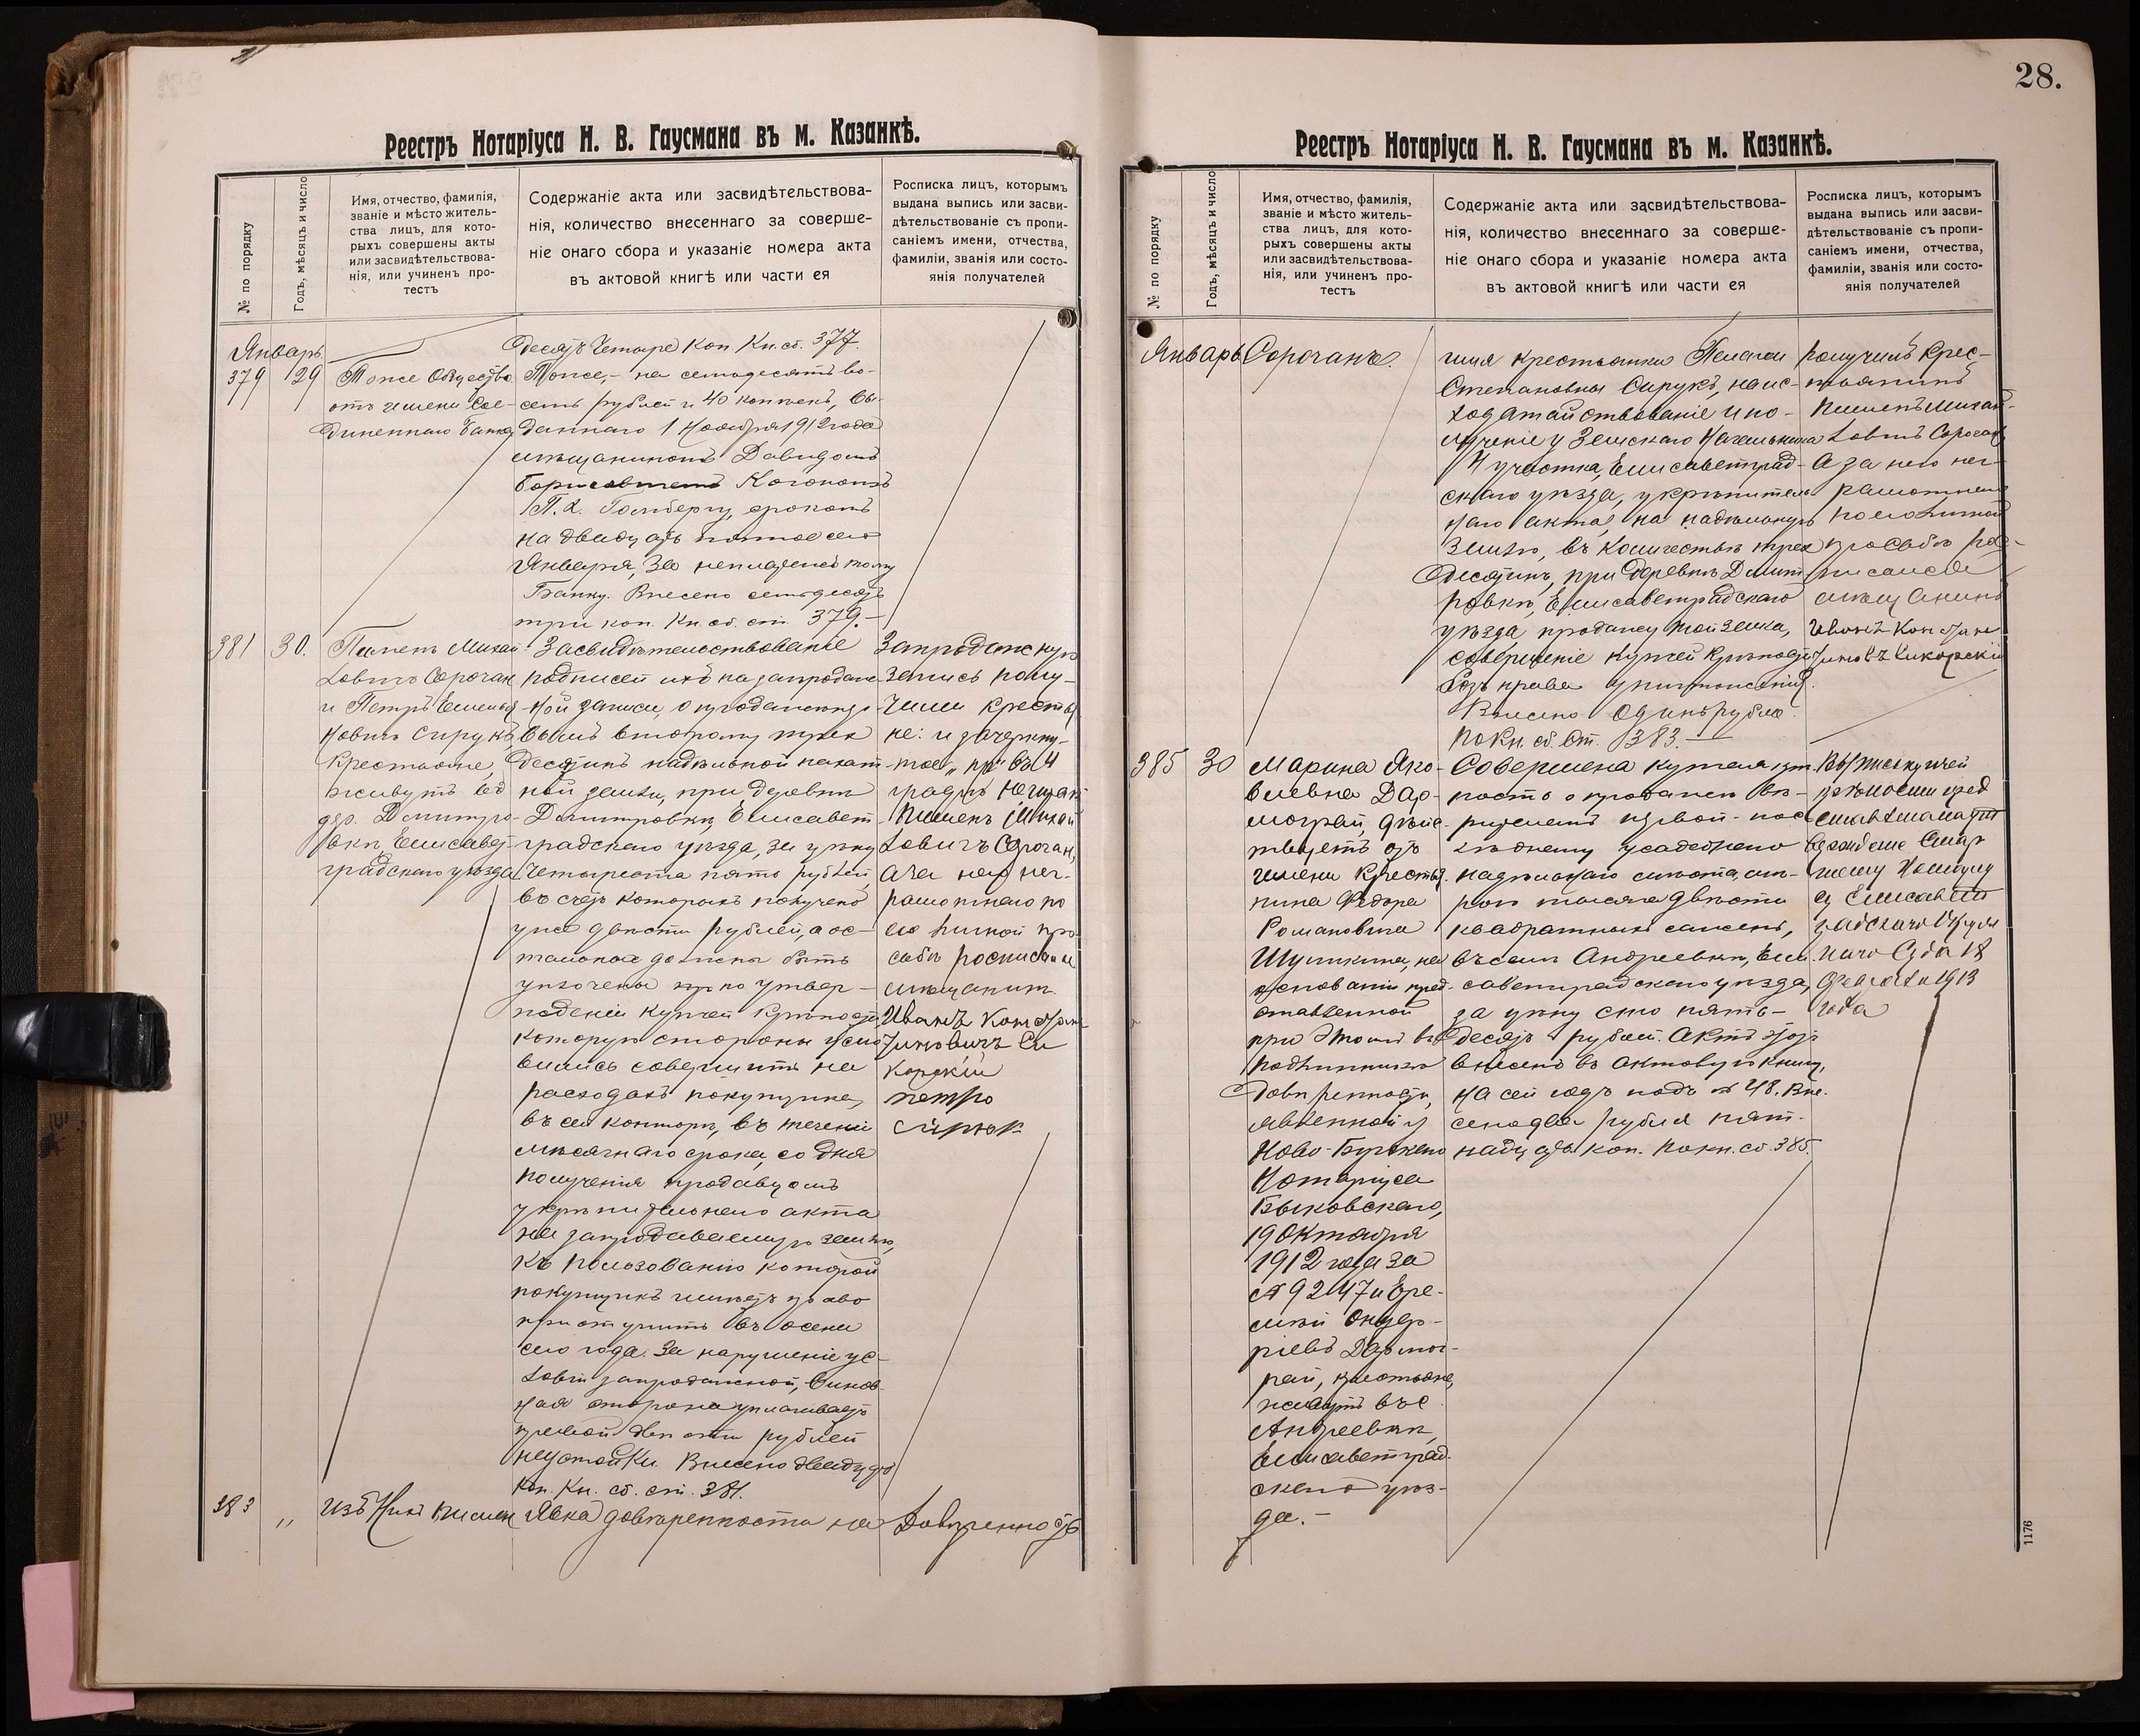 Реестръ Нотаріуса Н. В. Гаусмана въ м. Казанкѣ.
№ по порядку
Годъ, мѣсяцъ и число
Имя, отчество, фамилія,
званіе и мѣсто житель-
ства лицъ, для кото-
рыхъ совершены акты
или засвидѣтельствова-
нія, или учиненъ про-
тестъ
Содержаніе акта или засвидѣтельствова-
нія, количество внесеннаго за соверше-
ніе онаго сбора и указаніе номера акта
въ актовой книгѣ или части ея
Росписка лицъ, которымъ
выдана выпись или засви-
дѣтельствованіе съ пропи-
саніемъ имени, отчества,
фамиліи, званія или состо-
янія получателей
Январь
379 29
Тоже Общество
отъ имени Сое-
диненнаго Банка
десятъ четыре коп. Кн. сб. 377.
Тоже,- на семьдесятъ во-
семь рублей и 40 копѣекъ, вы-
даннаго 1 Ноября 1912 года
мѣщаниномъ Давидомъ
Борисовичемъ Коганомъ
срокомъ
на двадцать пятое сего
Января, за неплатежъ тому
Банку. Внесено семьдесятъ
три коп. Кн. сб. ст. 379.-
381 30.
Пименъ Михай-
ловичъ Сорочанъ
и Петръ Емелья-
новичъ Сирукъ,
Крестьяне,
живутъ въ
дер. Дмитро-
вкѣ, Елисавет-
градскаго уѣзда
Засвидѣтельствованіе
подписей ихъ на запродаж-
ной записи, о продажѣ пер-
вымъ второму трехъ
десятинъ надѣльной пахат-
ной земли, при деревнѣ
Дмитровкѣ, Елисавет-
градскаго уѣзда, за цѣну
Четыреста пять рублей
въ счетъ которыхъ получено
уже двѣсти рублей, а ос-
тальныя должны быть
уплочены при утвер-
жденіи купчей крѣпости,
которую стороны усло-
вились совершить на
расходахъ покупщика,
въ сей конторѣ, въ теченіи
мѣсячнаго срока, со дня
полученія продавцомъ
укрѣпительнаго акта
на запродаваемую землю,
къ пользованію которой
покупщикъ имѣетъ право
приступить въ осени
сего года. За нарушеніе ус-
ловій запродажной, винов-
ная сторона уплачиваетъ
правой двѣсти рублей
неустойки. Внесено двадцать
коп. Кн. сб. ст. 381.
Запродажную
запись полу-
чили крестья
не: и зачеркну-
тое „пр“ въ 4
графѣ не читать
Пименъ Михай
ловичъ Сорочан,
а за него нег-
рамотнаго по
его личной про-
сьбѣ росписался
мѣщанинъ
Иванъ Констан
тиновичъ Си
корскій
петро
сирюк
383 „
Изъ нихъ Пимен
Явка довѣренности на
Довѣренность
28.
Реестръ Нотаріуса Н. В. Гаусмана въ м. Казанкѣ.
№ по порядку
Годъ, мѣсяцъ и число
Имя, отчество, фамилія,
званіе и мѣсто житель-
ства лицъ, для кото-
рыхъ совершены акты
или засвидѣтельствова-
нія, или учиненъ про-
тестъ
Содержаніе акта или засвидѣтельствова-
нія, количество внесеннаго за соверше-
ніе онаго сбора и указаніе номера акта
въ актовой книгѣ или части ея
Росписка лицъ, которымъ
выдана выпись или засви-
дѣтельствованіе съ пропи-
саніемъ имени, отчества,
фамиліи, званія или состо-
янія получателей
Январь
Сорочанъ.
имя крестьянки Пелагеи
Степановны Сирукъ, на ис-
ходатайствованіе и по-
лученіе у Земскаго Начальника
4 участка, Елисаветград-
скаго уѣзда, укрѣпитель
наго акта на надѣльную
землю, въ количествѣ трехъ
десятинъ, при деревнѣ Дмит-
ровкѣ, Елисаветградскаго
уѣзда, продажу той земли,
совершеніе купчей крѣпости
безъ права уничтоженія.
Внесено одинъ рубль
по Кн. сб. ст. 383.-
получилъ Крес-
тьянинъ
Пименъ Михай-
ловичъ Сорочан
А за него нег-
рамотнаго
по его личной
просьбѣ рос-
писался
мѣщанинъ
Иванъ Констан
тиновъ Сикорскій
385 30
Марина Яко-
влевна Дар-
мограй, дѣйс-
твуетъ отъ
имени Крестья-
нина Федора
Романовича
Шушкина, на
основаніи пред-
ставленной
при этомъ въ
подлинникѣ
довѣренности,
явленной у
Ново-Бугскаго
Нотаріуса
Быковскаго,
19 Октября
1912 года за
№ 9247 и Ере-
мѣй
Дармог-
рай, крестьяне,
живутъ въ с.
Андреевкѣ,
Елисаветград-
скаго уѣз-
да.-
Совершена купчая крѣ-
пость о продажѣ вѣ-
рителемъ первой- пос-
лѣднему усадебнаго
надѣльнаго мѣста, мѣ-
рою тысяча двѣсти
квадратныхъ сажень,
въ селѣ Андреевкѣ, Ели-
саветградскаго уѣзда,
за цѣну сто пять-
десятъ рублей. Актъ этотъ
внесенъ въ актовую книгу,
на сей годъ подъ № 48. Вне-
сено два рубля пят-
надцать коп. по кн. сб. 385.
Выпись купчей
крѣпости пред
ставлена на ут
вержденіе Стар
шему Нотаріу
су Елисавет
градскаго Окруж
наго Суда 18
Февраля 1913
года
1176